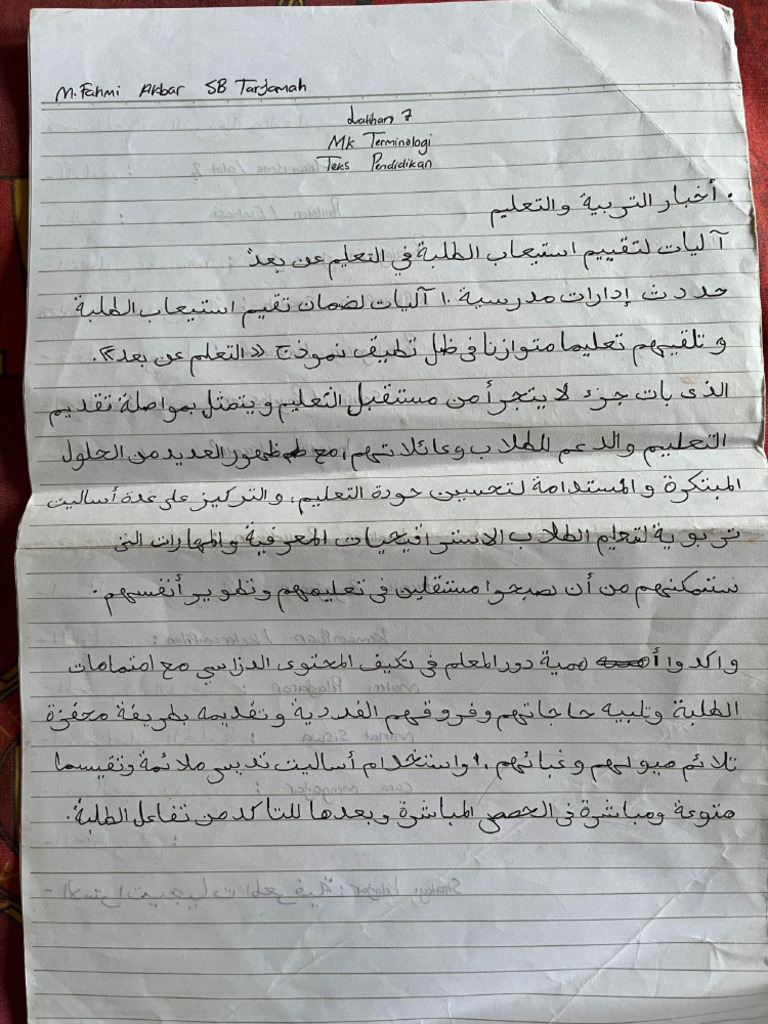 M. Fahmi Akbar 5B Tarjamah
Latihan 7
Mk Terminologi
Teks Pendidikan
. أخبار التربية والتعليم
آليات لتقييم استيعاب الطلبة في التعليم عن بعد
حددت إدارات مدرسية ١٠ آليات لضمان تقيم استيعاب الطلبة
وتلقيهم تعليما متوازنا في ظل تطبيق نموذج «التعلم عن بعد».
الذى بات جزء لا يتجرأ من مستقبل التعليم ويتمثل بمواصلة تقديم
التعليم والدعم للطلاب وعائلاتهم، مع ظهور العديد من الحلول
المبتكرة والمستدامة لتحسين جودة التعليم، والتركيز على عدة أساليت
تربوية لتعليم الطلاب الاستراتيجيات المعرفية والمهارات التى
ستمكنهم من أن يصبحوا مستقلين فى تعليمهم وتطوير أنفسهم.
واكدوا أهمية دور المعلم فى تكيف المحتوى الدراسي مع اهتمامات
الطلبة وتلبيه حاجاتهم وفروقهم الفددية وتقديمه بطريقة محفزة
تلائم ميولهم وغبائهم، واستخدام أساليت تديس ملائمة وتقيسما
متوعة ومباشرة فى الحصص المباشرة وبعدها للتاكد من تفاعل الطلبة.